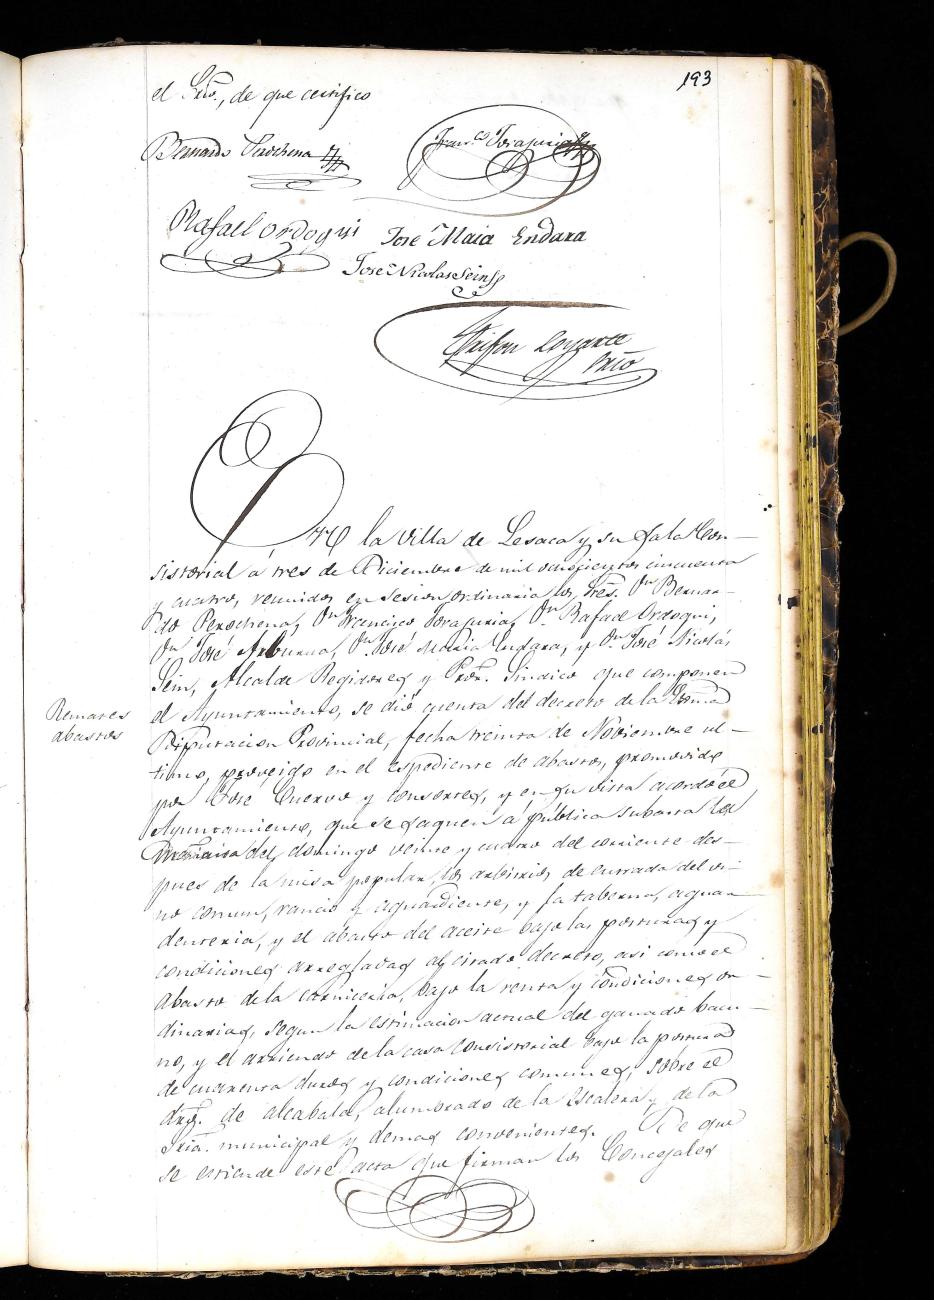 193
el Srio., de que certifico
Bernardo Perochena
Franco. Torajuria
Rafael Ordoqui José Maia Endara
José Nicolas Sein
Trifon Loyarte
Srio
En la villa de Lesaca y su Sala Con-
sistorial á tres de Diciembre de mil ochocientos cincuenta
y cuatro, reunidos en sesion ordinaria los Sres. Dn Bernar-
do Perochena, Dn Francisco Torajuria, Dn Rafael Ordoqui,
Dn José Arburua, Dn José Maria Endara, y Dn José Nicolás
Sein, Alcalde Regidores y Pror. Sindico que componen
el Ayuntamiento, se dió cuenta del decreto de la Exma
Remates
abastos
Diputacion Provincial, fecha treinta de Noviembre ul-
timo, proveido en el espediente de abastos, promovido
por José Cuervo y consortes, y en su vista acordó el
Ayuntamiento, que se saquen á pública subasta la
mañana del domingo veinte y cuatro del corriente des-
pues de la misa popular, los arbitrios de entrada del vi-
no comun, rancio y aguardiente, y la taberna, aguar-
denteria, y el abasto del aceite bajo las posturas y
condiciones arregladas al citado decreto, asi como el
abasto de la carniceria, bajo la renta y condiciones or-
dinarias, segun la estimacion actual del ganado bacu-
no, y el arriendo de la casa Consistorial bajo la postura
de cuarenta duros y condiciones comunes, sobre el
de alcabala, alumbrado de la Escalera y de la
Sria. municipal y demas convenientes. De que
se estiende este acta que firman los Concejales